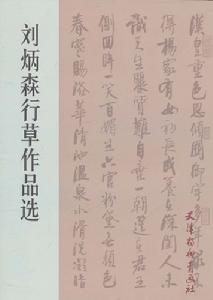 刘炳森行草作品选
漢皇重色思傾國御宇多年求不
得楊家有女初長成養在深閨人未
識天生麗質難自棄一朝選在君王
側回眸一笑百媚生六宮粉黛無顏色
春寒賜浴華清池溫泉水滑洗凝脂
天津杨柳青画社